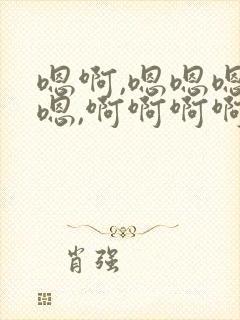 嗯啊,嗯嗯嗯
嗯,啊啊啊啊
肖强